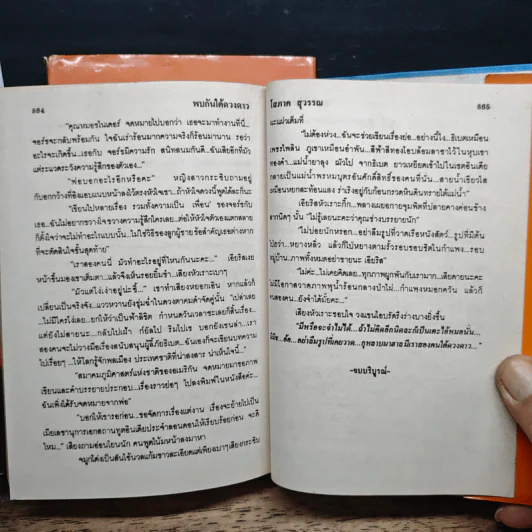 864
พบกันใต้ดวงดาว
"คุณหมอรไนเคอร์ จดหมายไปบอกว่า เธอจะมาทำงานที่นี่...
จอร์ชจะกลับพร้อมกัน ใจฉันเร่าร้อนมากความจริงก็ร้อนมานาน รอว่า
อะไรจะเกิดขึ้น...เธอกับ จอร์ชมีความรัก สนิทสนมกันดี...ฉันเสียอีกที่มัว
แต่ระแวดระวังความรู้สึกของตัวเอง..."
"พ่อบอกอะไรอีกหรือคะ" หญิงสาวกระซิบถามอยู่
กับอกกว้างที่อิงแอบแนบหน้าลงไว้ตรงหัวใจเขา...ถ้าหัวใจดวงนี้พูดได้ละก้นะ
"เขียนไปหลายเรื่อง รวมทั้งความเป็น เพื่อน ของจอร์ชกับ
เธอ...ฉันไม่อยากขวางใจขวางความรู้สึกใครเลย...ต่อให้หัวใจตัวเองแตกสลาย
ก็ตั้งใจว่าจะไม่ทำอะไรแบบนั้น...ไม่ใช่วิธีของลูกผู้ชายข้อสำคัญเธอต่างหากที่
จะตัดสินใจขั้นสุดท้าย"
"เราสองคนนี่ มัวทำอะไรอยู่ที่ไหนกันนะคะ..." เอียริสเงย
หน้าขึ้นมองเขาเต็มตา...แล้วจึงเห็นรอยยิ้มเข้า...เสียงหัวเราะเบาๆ
"มัวแต่โง่งำอยู่น่ะซี..." เขาทำเสียงหยอกเอิน หากแล้วก็
เปลี่ยนเป็นจริงจัง...แววหวานยังรุ่มฉ่ำในดวงตาคมดำจัดคู่นั้น "เปล่าเลย
...ไม่มีใครโง่เลย...ยกให้ว่าเป็นฟ้าลิขิต กำหนดวันเวลาชะเลยก็สิ้นเรื่อง...
แต่ยังไม่สายนะ...กลับไปเฝ้า กัยสิไป ริมไปเร บอกยังเขนล่า...เรา
สองคนจะไม่วางมือเรื่องสนับสนุนผู้ลี้ภัยธิเบต...ฉันเองก็จะเขียนบทความ
ไปเรื่อยๆ ...ให้โลกรู้จักพลเมือง ประเทศชาติที่น่าสงสาร น่าเห็นใจนี้..."
"สมาคมภูมิศาสตร์แห่งชาติของอเมริกัน จดหมายมาขอภาพ
เขียนและคำบรรยายประกอบ...เรื่องราวย่อๆ ไปลงพิมพ์ในหนังสือค่ะ...
ฉันเพิ่งได้รับจดหมายจากพ่อ"
"บอกให้เขารอก่อน...ขอจัดการเรื่องแต่งงาน เรื่องจะย้ายไปเป็น
เมียเลขานุการเอกสถานทูตอินเดียประจำลอนดอนให้เรียบร้อยก่อน จะดี
ไหม..." เสียงถามอ่อนโยนนัก คนพูดโน้มหน้าลงมาหา
จมูกโด่งเป็นสันใช้นวลแก้มขาวละเอียดแต่เพียงเบาๆเสียงกระซิบ
โสภาค สุวรรณ
865
แะแผ่วเต็มที่
"ไม่ต้องห่วง...ฉันจะช่วยเขียนเรื่องย่อ...อย่างนี้ไง...ธิเบตเหมือน
เพชรไพลิน ภูเขาเหมือนอำพัน...สีฟ้าสีทองโอบล้อมลาซาไว้ในหุบเขา
ทองคำ...แม่น้ำยาลุง ผัวไป จากธิเบต ยาวเหยียดเข้าไปในเขตอินเดีย
กลายเป็นแม่น้ำพรหมบุตรละอองศักดิ์สิทธิ์ของคนที่นั้น...สายน้ำเขียวใส
เหมือนหยกสะท้อนแสง ร่าเริงอยู่กับก้อนกรวดหินดินทรายใต้แม่น้ำ"
เอียริสหัวเราะกิ๊ก...พลางเผยอกายชูมพิตที่ปลายคางค่อนข้าง
สากนิดๆ นั้น "ไม่รู้เลยนะคะว่าคุณช่างบรรยายนัก"
"ไม่บ่อยนักหรอก...อย่าลืมรูปที่วาดเรือหนังสัตว์...รูปที่มีต้น
ป่อวา...หยางหลิ่ว แล้วก็ไปหยางตามรั้วรอบขอบชิดในกำแพง...รอบ
หมู่บ้าน...ภาพทั้งหมดถ่ายอยู่ที่ฉันนะซี"
"ไม่ค่ะ...ไม่เคยคิดเลย...ทุกภาพผูกพันกับเรามาก...เสียดายนะคะ
ไม่มีโอกาสวาดภาพพุน้ำร้อนกลางป่าไม้...กำแพงหมอกควัน แล้วก็
คนสองคน...ยังจำได้มั้ยคะ..."
เสียงหัวเราะชอบใจ วงแขนโอบรั้งร่างบางยิ่งขึ้น
"มีหรือจะจำไม่ได้...ถ้าไม่คิดอีกนิดจะก็เป็นตะไร้หมอนั้น...
...อย่าลืมรูปที่เคยวาด...กุหลาบมาลามีเราสองคนใต้ดวงดาว..."
-จบบริบูรณ์-